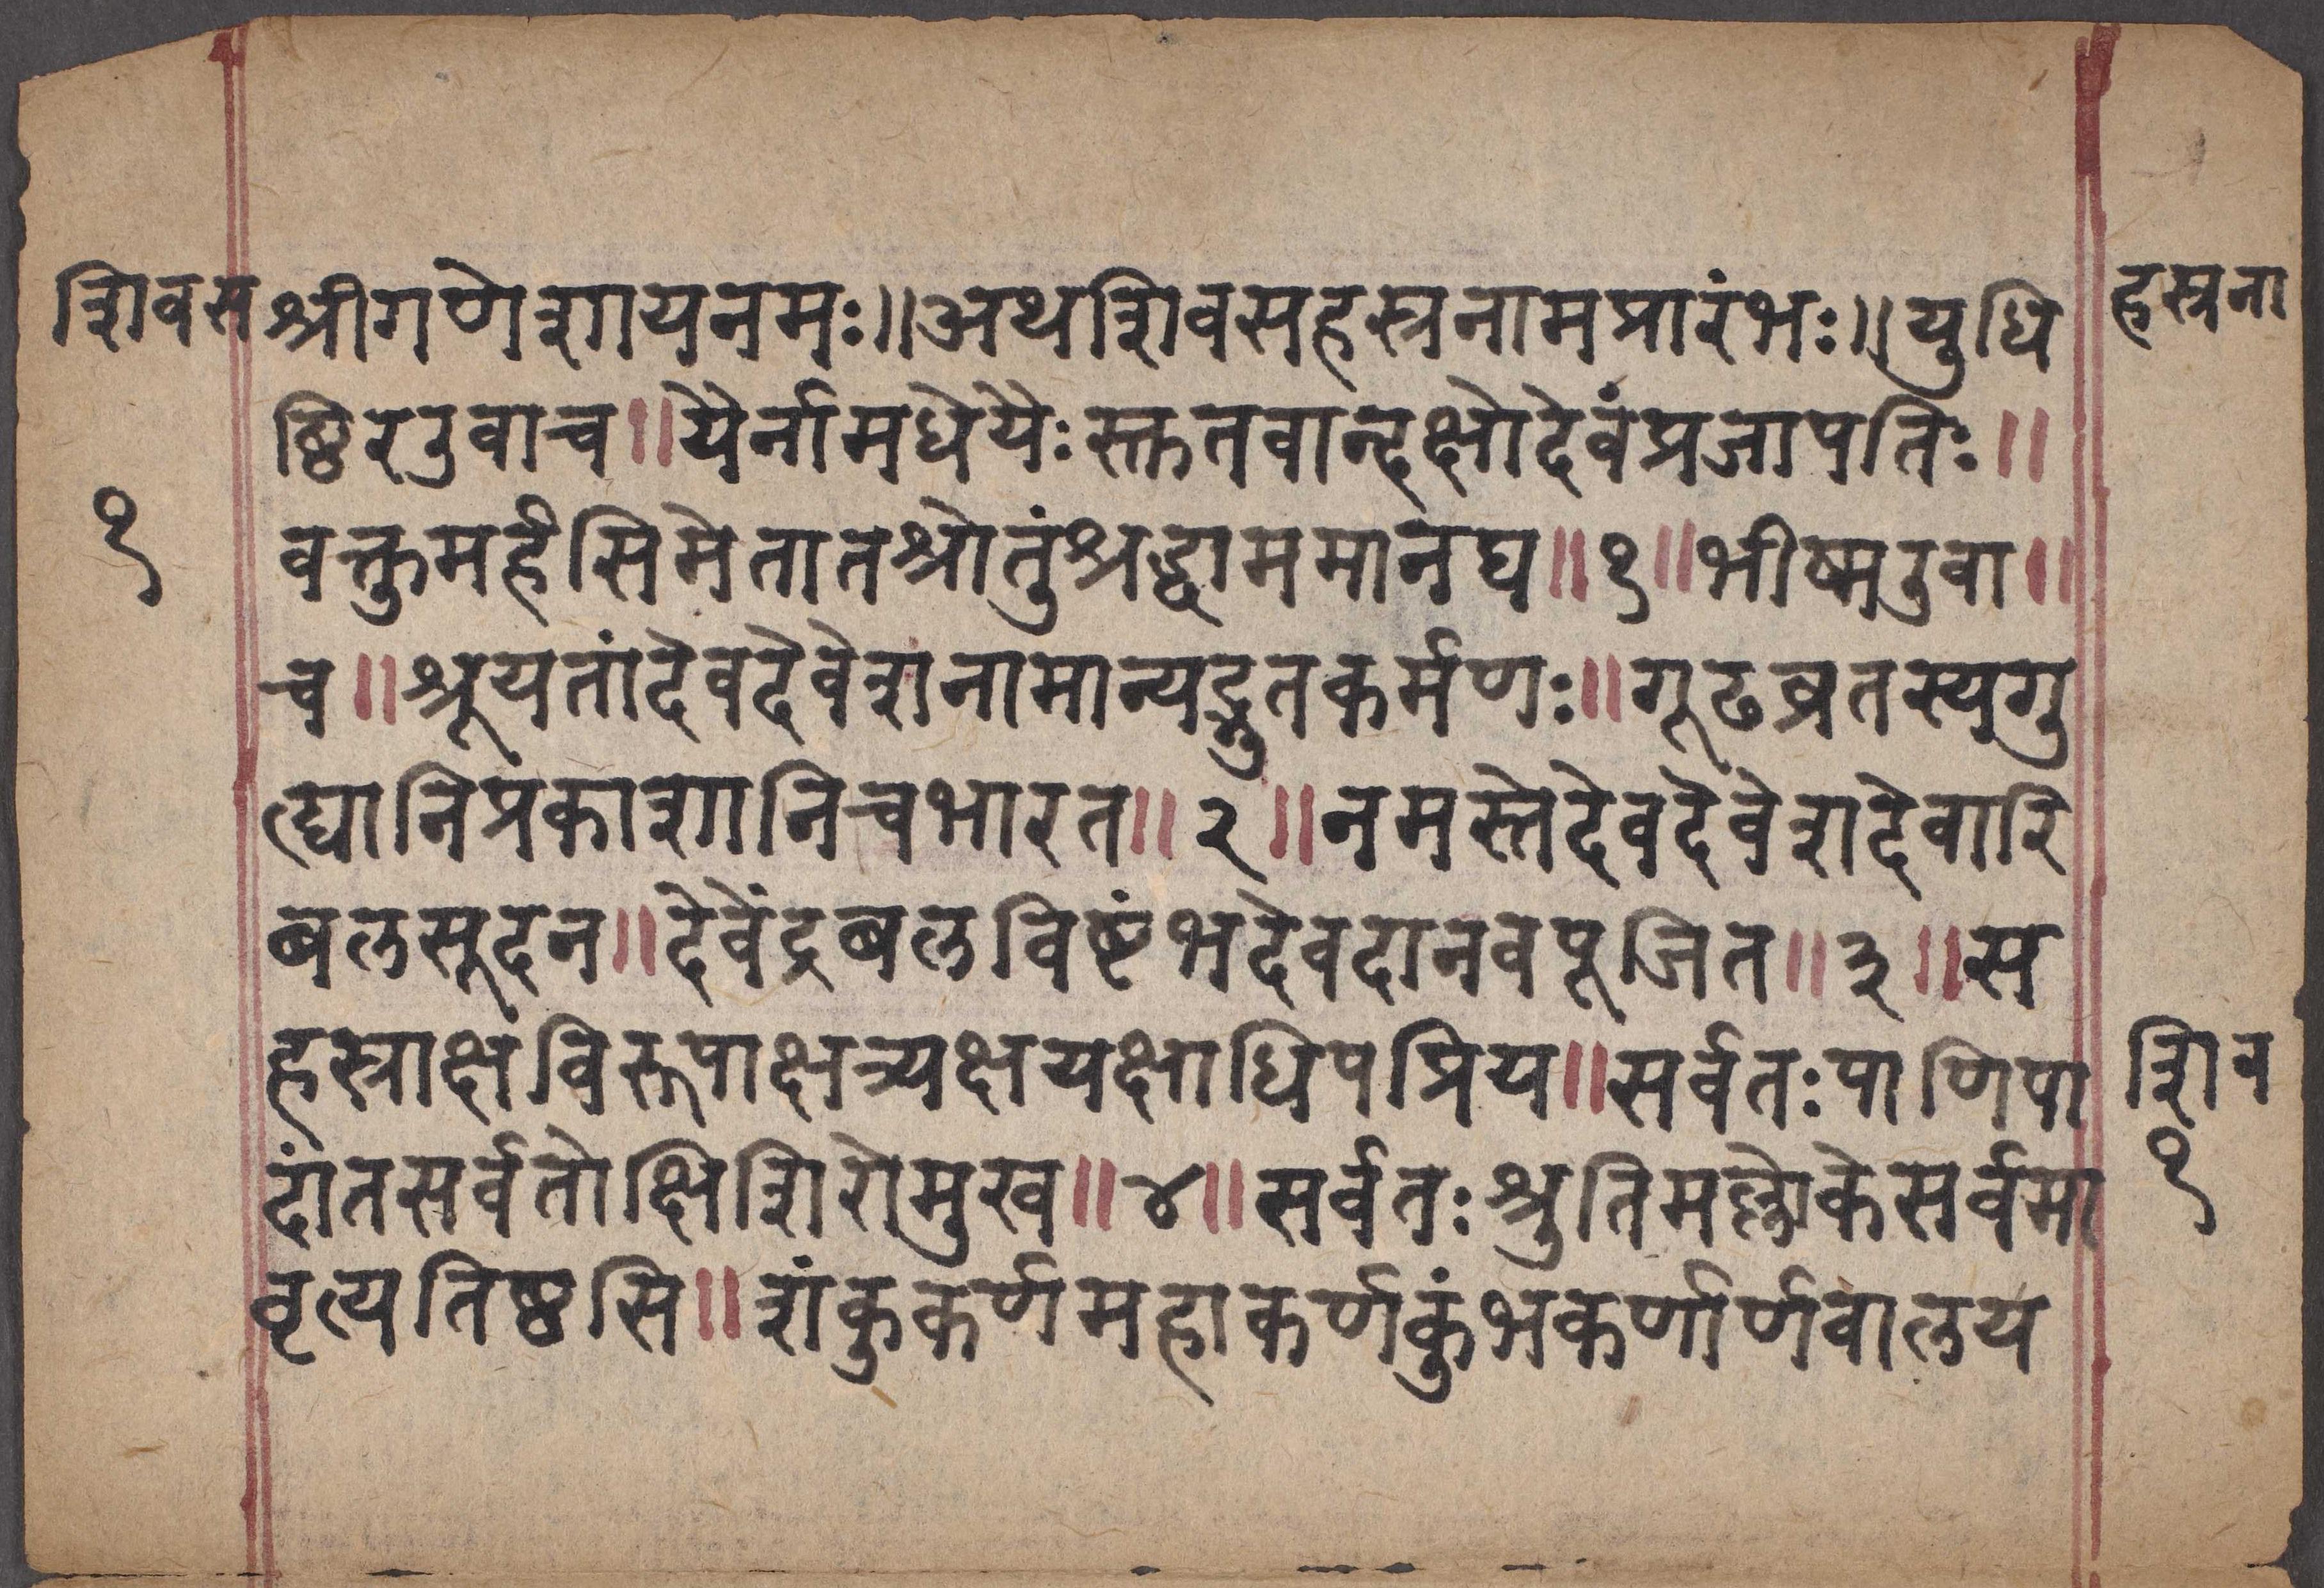 शिवस श्रीगणेशायनमः॥अथशिवसहस्रनामप्रारंभः॥युधि हस्रना
ष्ठिरउवाच॥यैर्नामधेयैःस्तुतवान्दक्षोदेवंप्रजापतिः॥
१ वक्तुमर्हसिमेतातश्रोतुंश्रद्धाममानघ॥१॥भीष्मउवा॥
च॥श्रूयतांदेवदेवेशनामान्यद्भुतकर्मणः॥गूढव्रतस्यगु
ह्यानिप्रकाशानिचभारत॥२॥नमस्तेदेवदेवेशदेवारि
बलसूदन॥देवेंद्रबलविष्टंभदेवदानवपूजित॥३॥स
हस्राक्षविरूपाक्षत्र्यक्षयक्षाधिपप्रिय॥सर्वतःपाणिपा शिव
दांतसर्वतोक्षिशिरोमुख॥४॥सर्वतःश्रुतिमल्लोकेसर्वमा १
वृत्यतिष्ठसि॥शंकुकर्णमहाकर्णकुंभकर्णार्णवालय